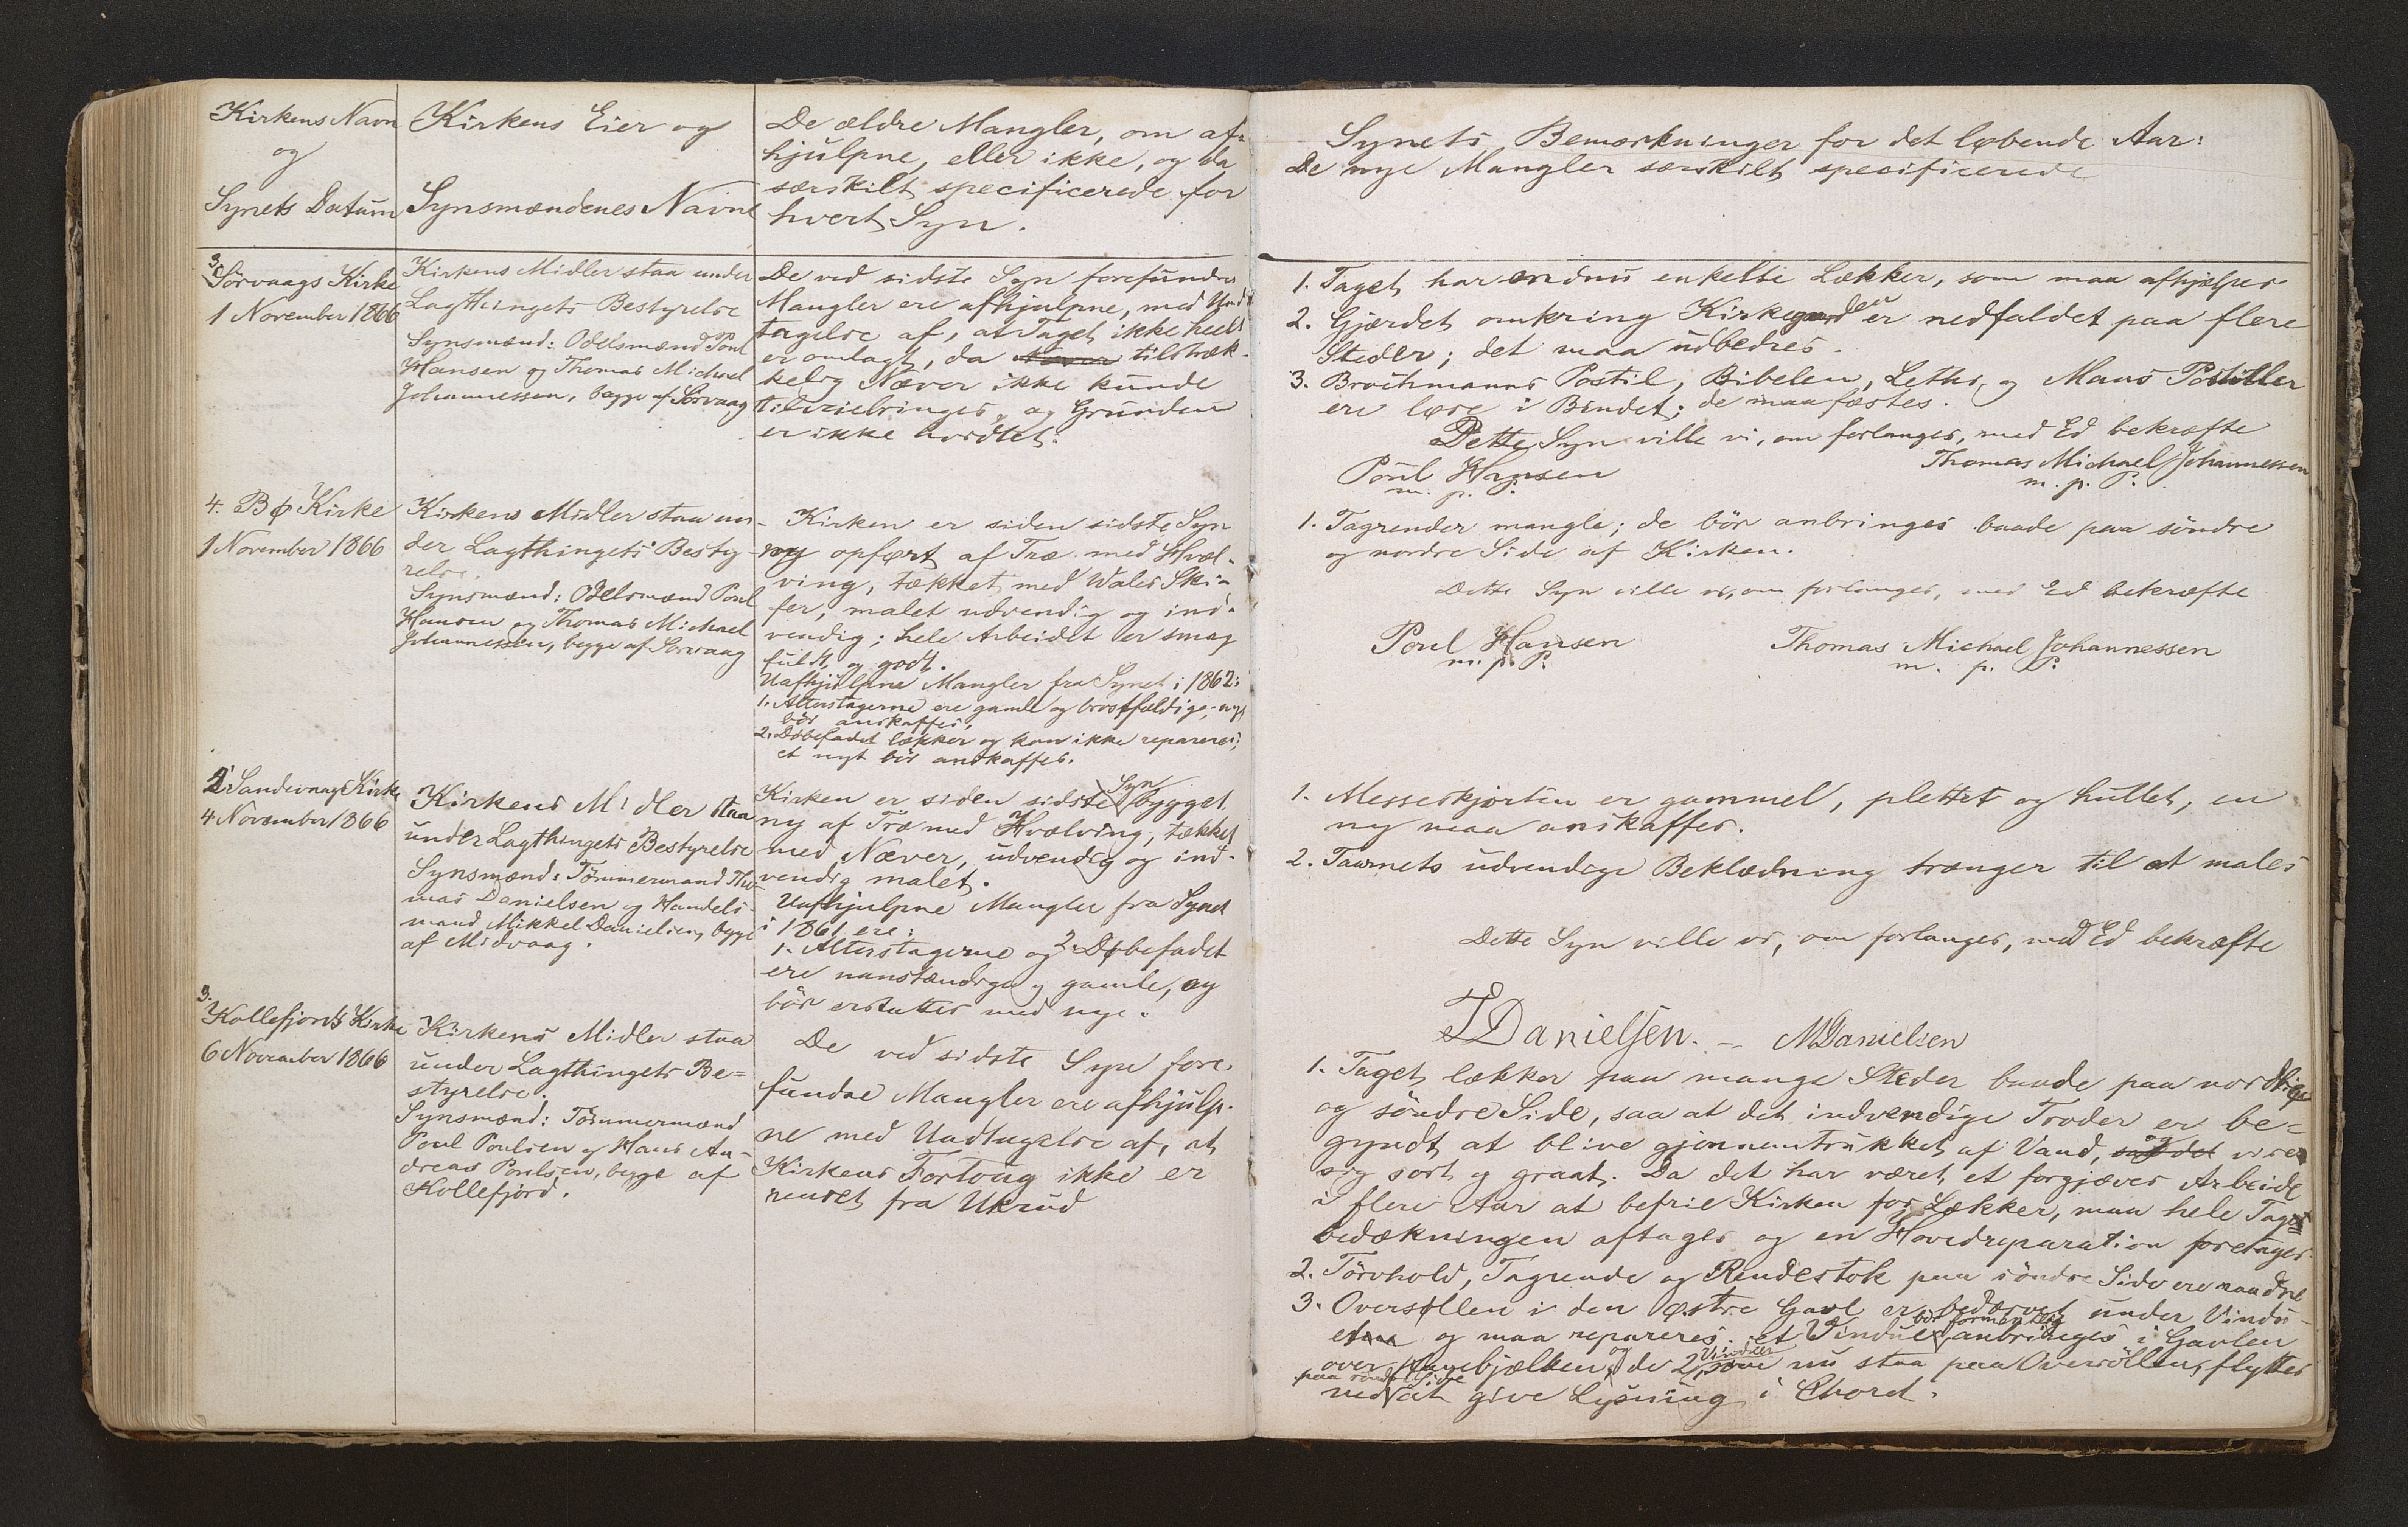 Kirkens Navn
og
Synets Datum
Kirkens Eier og
Synsmændenes Navne
De ældre Mangler, om af-
hjulpne, eller ikke, og da
særskilt specificerede for
hvert Syn.
Synets Bemærkninger for det løbende Aar:
De nye Mangler særskilt specificerede
3.
Sörvaags Kirke
1 November 1866
Kirkens Midler staa under
Lagthingets Bestyrelse
Synsmænd: Odelsmænd Poul
Hansen og Thomas Michael
Johannessen, begge af Sörvaag
De ved sidste Syn forefundne
Mangler ere afhjulpne, med Und-
tagelse af, at Taget ikke heelt
er omlagt, da tilstræk-
kelig Næver ikke kunde
tilveiebringes, og Grunden
er ikke
1. Taget har endnu enkelte Lækker, som maa afhjælpes
2. Gjærdet omkring Kirkegaarden er nedfaldet paa flere
Steder; det maa udbedres.
3. Brochmanns Postil, Bibelen, Leths og Maus Postiller
ere løse i Bindet; de maa fæstes.
Dette Syn ville vi, om forlanges, med Ed bekræfte
Poul Hansen
m. p. P.
Thomas Michael Johannessen
m. p. P.
4. Bø Kirke
1 November 1866
Kirkens Midler staa un-
der Lagthingets Besty-
relse.
Synsmænd: Odelsmænd Poul
Hansen og Thomas Michael
Johannessen, begge af Sörvaag
Kirken er siden sidste Syn
ny opført af Træ med Hvæl-
ving, tækket med Wales Ski-
fer, malet udvendig og ind-
vendig; hele Arbeidet er smag
fuldt og godt.
Uafhjulpne Mangler fra Synet i 1862:
1. Alterstagerne ere gamle og brøstfældige; nye
bör anskaffes.
2. Døbefadet lækker og kan ikke repareres;
et nyt bör anskaffes.
1. Tagrender mangle; de bör anbringes baade paa söndre
og nordre Side af Kirken.
Dette Syn ville vi, om forlanges, med Ed bekræfte
Poul Hansen
m. p. P.
Thomas Michael Johannessen
m. p. P.
Sandevaags Kirke
4 November 1866
Kirkens Midler staa
under Lagthingets Bestyrelse
Synsmænd: Tömmermand Tho-
mas Danielsen og Handels-
mand Mikkel Danielsen, begge
af Midvaag.
Kirken er siden sidste Syn bygget
ny af Træ med Hvælving, tækket
med Næver, udvendig og ind-
vendig malet.
Uafhjulpne Mangler fra Synet
i 1861 ere:
1. Alterstagerne og 2. Døbefadet
ere uanstændige og gamle, og
bör erstattes med nye.
1. Messeskjorten er gammel, plettet og hullet; en
ny maa anskaffes.
2. Taarnets udvendige Beklædning trænger til at males
Dette Syn ville vi, om forlanges, med Ed bekræfte
TDanielsen. – MDanielsen
3.
Kollefjords Kirke
6 November 1866
Kirkens Midler staa
under Lagthingets Be=
styrelse.
Synsmænd: Tömmermænd
Poul Poulsen og Hans An-
dreas Poulsen, begge af
Kollefjord.
De ved sidste Syn fore-
fundne Mangler ere afhjulp-
ne med Undtagelse af, at
Kirkens Fortoug ikke er
renset fra Ukrud
1. Taget lækker paa mange Steder baade paa nordlige
og söndre Side, saa at det indvendige Troder er be=
gyndt at blive gjennemtrukket af Vand, og viser
sig sort og graat. Da det har været et forgjæves Arbeide
i flere Aar at befrie Kirken for Lækker, maa hele Taget
bedækningen aftages og en Hovedreparation foretages.
2. Törvhold, Tagrende og Rendestok paa söndre Side ere raadne
3. Oversyllen i den østre Gavl er bedærvet under Vindu-
og maa repareres. et Vindue bör formentlig anbringes i Gavlen
over bjælken, og de 2 Vinduer som nu staa paa Oversyllen, flyttes
ned paa söndre Side at give Lysning i Choret.